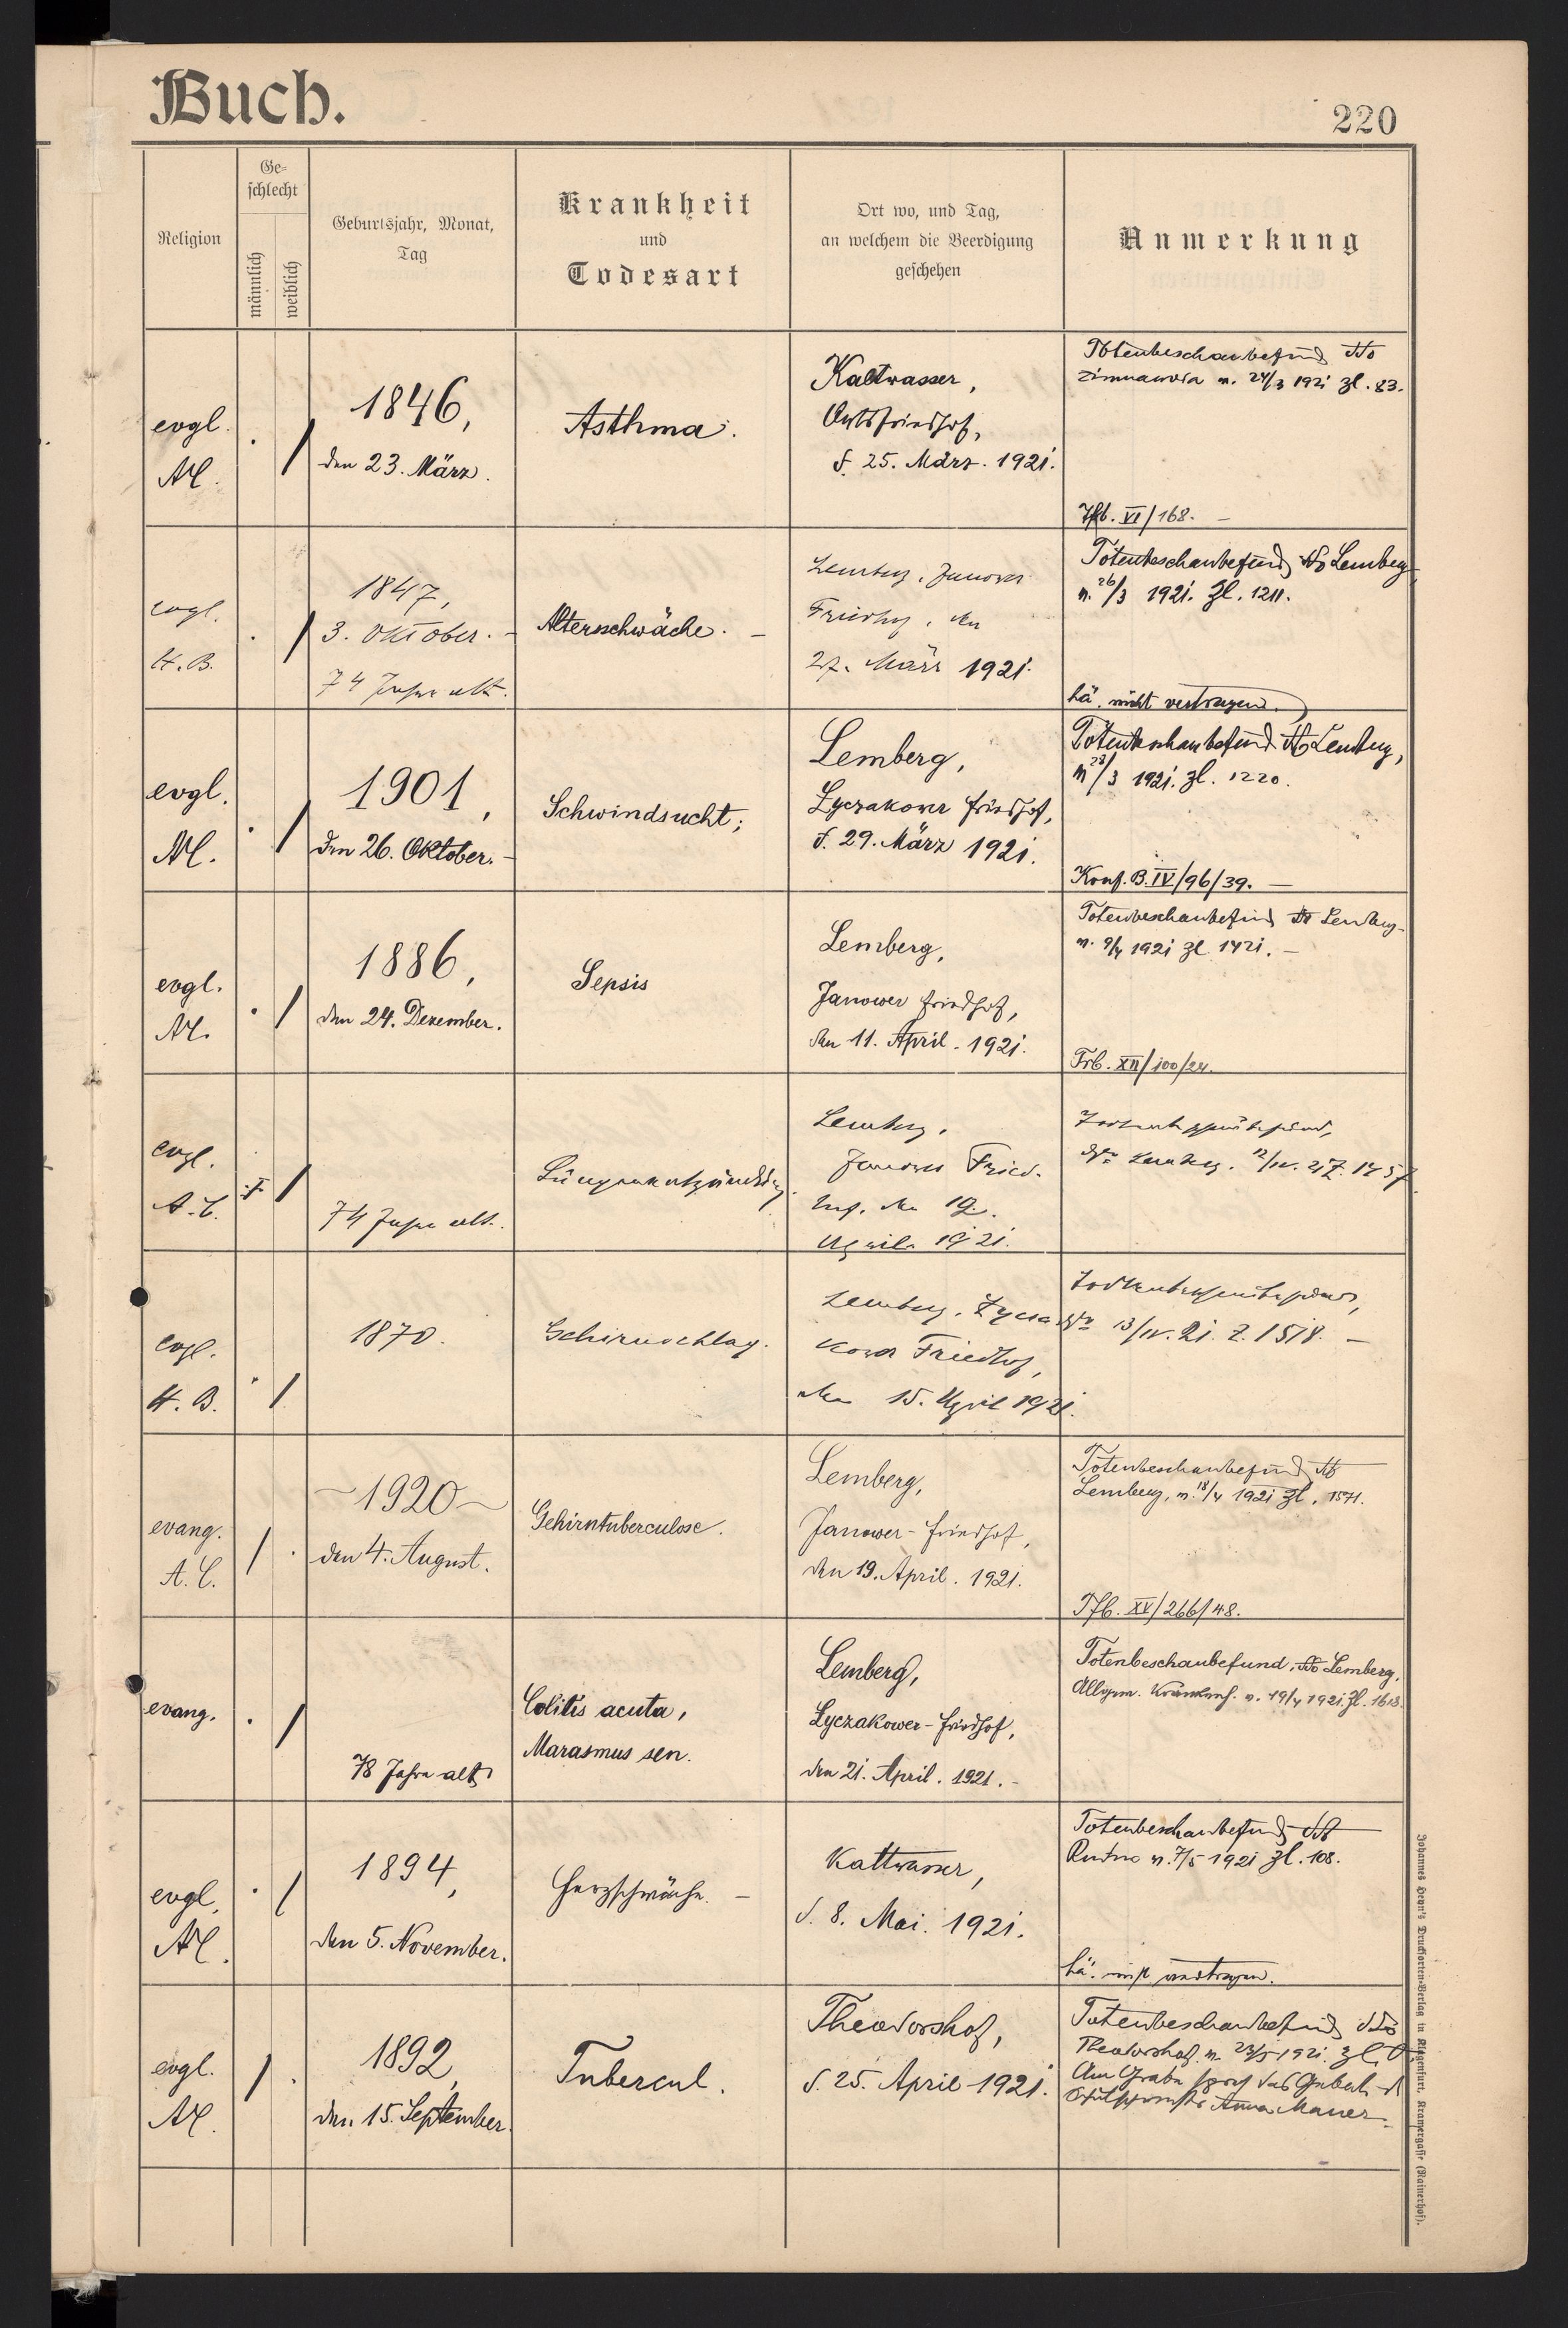 Buch.
220
Religion
Ge-
schlecht
männlich
weiblich
Geburtsjahr, Monat,
Tag
Krankheit
und
Todesart
Ort wo, und Tag,
an welchem die Beerdigung
geschehen
Anmerkung
evgl.
AC.
. /
1846,
den 23. März.
Asthma.
Kaltwasser,
Ortsfriedhof,
d. 25. März. 1921.
Totenbeschaubefund ddo
Zimnawoda n. 24/3 1921 Zl. 83.
VI/168. –
evgl.
H. B.
. /
1847,
3. Oktober. –
74 Jahre alt.
Altersschwäche. –
Lemberg, Janower
Friedhof, den
27. März 1921.
Totenbeschaubefund ddo Lemberg,
n. 26/3 1921. Zl. 1211.
nicht vertragen.
evgl.
AC.
. /
1901,
den 26. Oktober. –
Schwindsucht;
Lemberg,
Lyczakower Friedhof,
d. 29. März 1921.
Totenbeschaubefund ddo Lemberg,
n 28/3 1921. Zl. 1220.
Konf. B. IV/96/39. –
evgl.
AC.
. /
1886,
den 24. Dezember.
Sepsis
Lemberg,
Janower Friedhof,
den 11. April. 1921.
Totenbeschaubefund ddo Lemberg
n. 9/4 1921 Zl. 1421. –
Trb. XII/100/24.
evgl.
A. C.
/
74 Jahre alt.
Lungenentzündung.
Lemberg,
Janower Fried-
hof, den 12.
April 1921.
Lemberg. 12/IV. 21 Z. 1457.
evgl.
H. B.
. /
1870.
Gehirnschlag.
Lemberg, Lycza-
kower Friedhof,
den 15. April 1921.
ddo 13/IV. 21. Z. 1518. –
evang.
A. C.
/ .
– 1920 –
den 4. August.
Gehirntuberculose.
Lemberg,
Janower-Friedhof,
den 19. April. 1921.
Totenbeschaubefund ddo
Lemberg, n. 18/4 1921 Zl. 1571.
Tfb. XV/266/48.
evang.
. /
78 Jahre alt
Colitis acuta,
Marasmus sen.
Lemberg,
Lyczakower-Friedhof,
den 21. April. 1921. –
Totenbeschaubefund, ddo Lemberg,
Allgem. Krankenh. n. 19/4 1921. Zl. 1613.
evgl.
AC.
. /
1894,
den 5. November.
Herzschwäche. –
Kaltwasser,
d. 8. Mai. 1921.
Totenbeschaubefund ddo
Rudno n. 7/5 1921 Zl. 108.
nicht vertragen.
evgl.
AC.
/ .
1892,
den 15. September.
Tubercul.
Theodorshof,
d. 25. April 1921.
Totenbeschaubefund ddo
Theodorshof n. 23/5 1921. Zl. 0.
Am Grabe sprach das Gebet d
Anna Mauer.
Johannes Heyn's Drucksorten-Verlag in Klagenfurt, Kramergasse (Rainerhof).